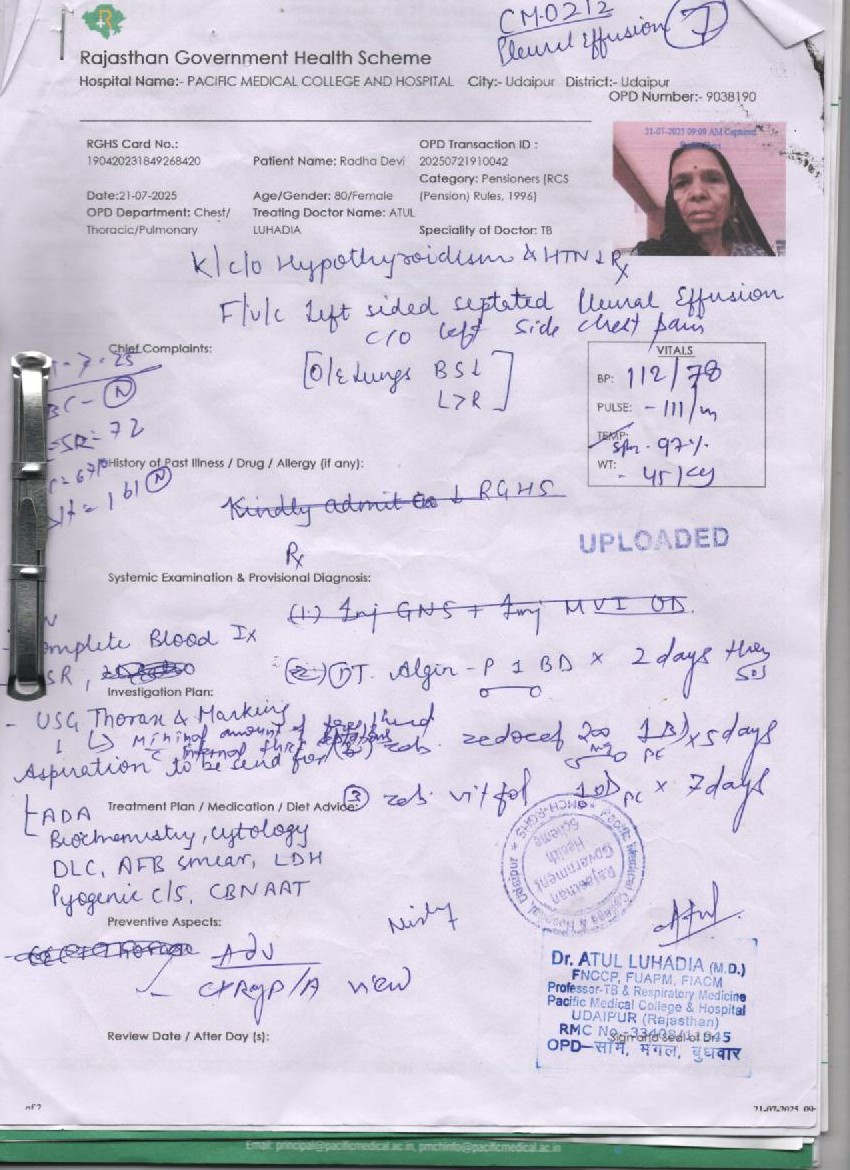 CM0212
Pleural Effusion
7
Rajasthan Government Health Scheme
Hospital Name:- PACIFIC MEDICAL COLLEGE AND HOSPITAL City:- Udaipur District:- Udaipur
OPD Number:- 9038190
RGHS Card No.:
190420231849268420
Patient Name: Radha Devi
OPD Transaction ID :
20250721910042
Category: Pensioners (RCS
(Pension) Rules, 1996)
21-07-2025 09:09 AM Captured
Date:21-07-2025
Age/Gender: 80/Female
OPD Department: Chest/
Thoracic/Pulmonary
Treating Doctor Name: ATUL
LUHADIA
Speciality of Doctor: TB
K/c/o Hypothyroidism & HTN ↓ Rx
F/u/c Left sided septated Pleural Effusion
c/o left side chest pain
Chief Complaints:
[O/E Lungs BS↓
L>R]
VITALS
BP: 112/78
PULSE: - 111/m
TEMP:
97%
WT: - 45 kg
-7-25
BC - N
SR = 72
161 N
History of Past Illness / Drug / Allergy (if any):
Kindly admit ↓ RGHS
UPLOADED
Rx
Systemic Examination & Provisional Diagnosis:
(1) Inj GNS + Inj MVI OD
omplete Blood Ix
SR,
(2) (1) T. Algin - P 1 BD × 2 days then SOS
Investigation Plan:
- USG Thorax & Marking
↓ ↳ Minimal amount of
internal thick septations
Aspiration to be send for
zedocef 200 mg 1 BD PC × 5 days
(3) vitfol 1 OD PC × 7 days
Treatment Plan / Medication / Diet Advice:
ADA
Biochemistry, cytology
DLC, AFB smear, LDH
Pyogenic c/s, CBNAAT
Rajasthan Government Health Scheme
Preventive Aspects:
Adv
- CXR P/A view
Dr. ATUL LUHADIA (M.D.)
FNCCP, FUAPM, FIACM
Professor-TB & Respiratory Medicine
Pacific Medical College & Hospital
UDAIPUR (Rajasthan)
RMC No.
Sign and seal of Dr.
OPD-सोम, मंगल, बुधवार
Review Date / After Day (s):
of 2
21-07-2025 09:
Email: principal@pacificmedical.ac.in, pmchinfo@pacificmedical.ac.in